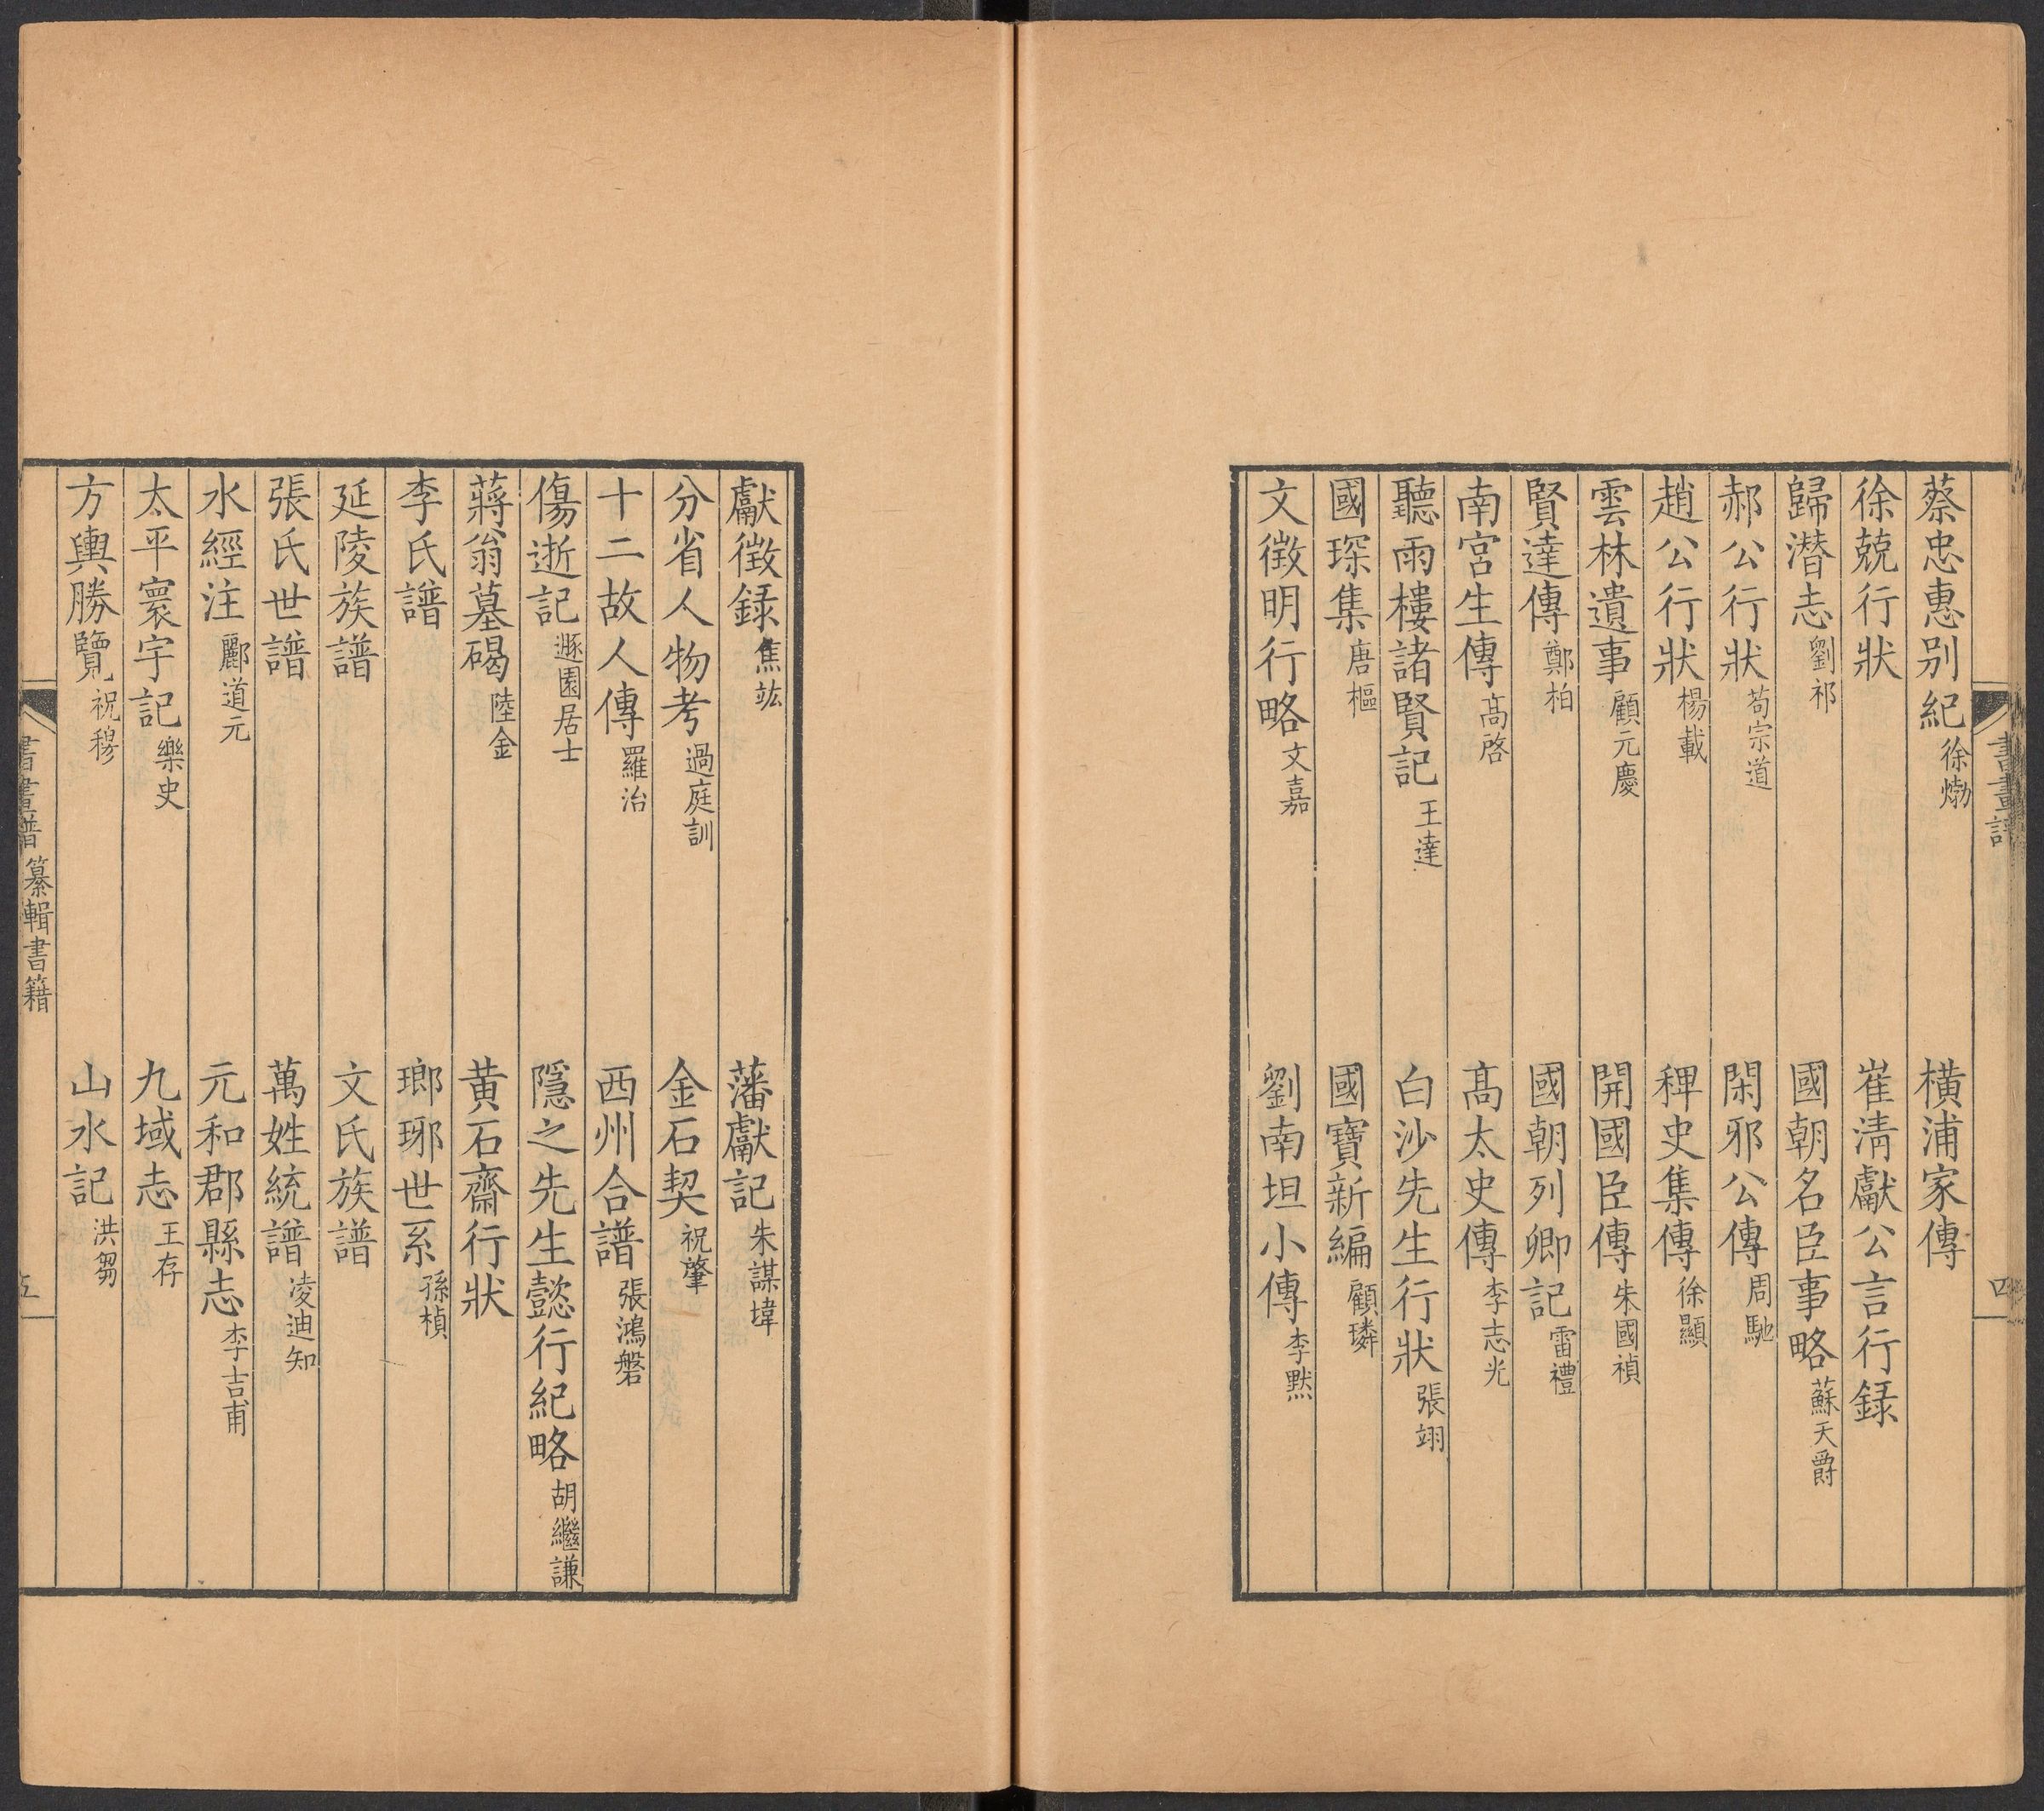 書畫譜 四
蔡忠惠别紀 徐𤊹 橫浦家傳
徐兢行狀 崔清獻公言行録
歸潛志 劉祁 國朝名臣事略 蘇天爵
郝公行狀 苟宗道 閑邪公傳 周馳
趙公行狀 楊載 稗史集傳 徐顯
雲林遺事 顧元慶 開國臣傳 朱國禎
賢達傳 鄭柏 國朝列卿記 雷禮
南宮生傳 髙啓 髙太史傳 李志光
聽雨樓諸賢記 王達 白沙先生行狀 張翊
國琛集 唐樞 國寶新編 顧璘
文徵明行略 文嘉 劉南坦小傳 李默
獻徵録 焦竑 藩獻記 朱謀㙔
分省人物考 過庭訓 金石契 祝肇
十二故人傳 羅治 西州合譜 張鴻磐
傷逝記 遯園居士 隱之先生懿行紀略 胡繼謙
蔣翁墓碣 陸金 黄石齋行狀
李氏譜 瑯琊世系 孫楨
延陵族譜 文氏族譜
張氏世譜 萬姓統譜 凌迪知
水經注 酈道元 元和郡縣志 李吉甫
太平寰宇記 樂史 九域志 王存
方輿勝覽 祝穆 山水記 洪芻
書畫譜 纂輯書籍 五